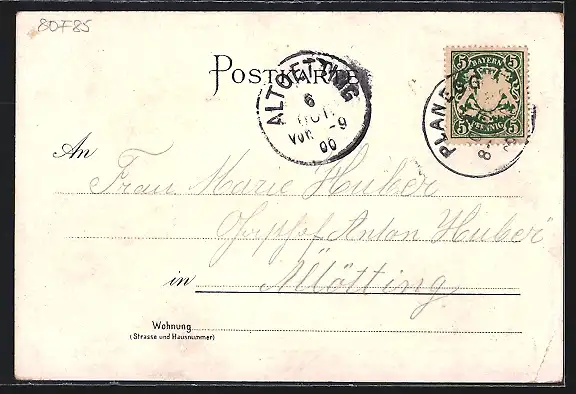 80F85
POSTKARTE
ALTOETTING
6
VOR. -9
00
PLANEGG
8
BAYERN
5 5
5 PFENNIG 5
An
Frau Marie Huber
Anton Huber
in Altötting
Wohnung
(Strasse und Hausnummer)